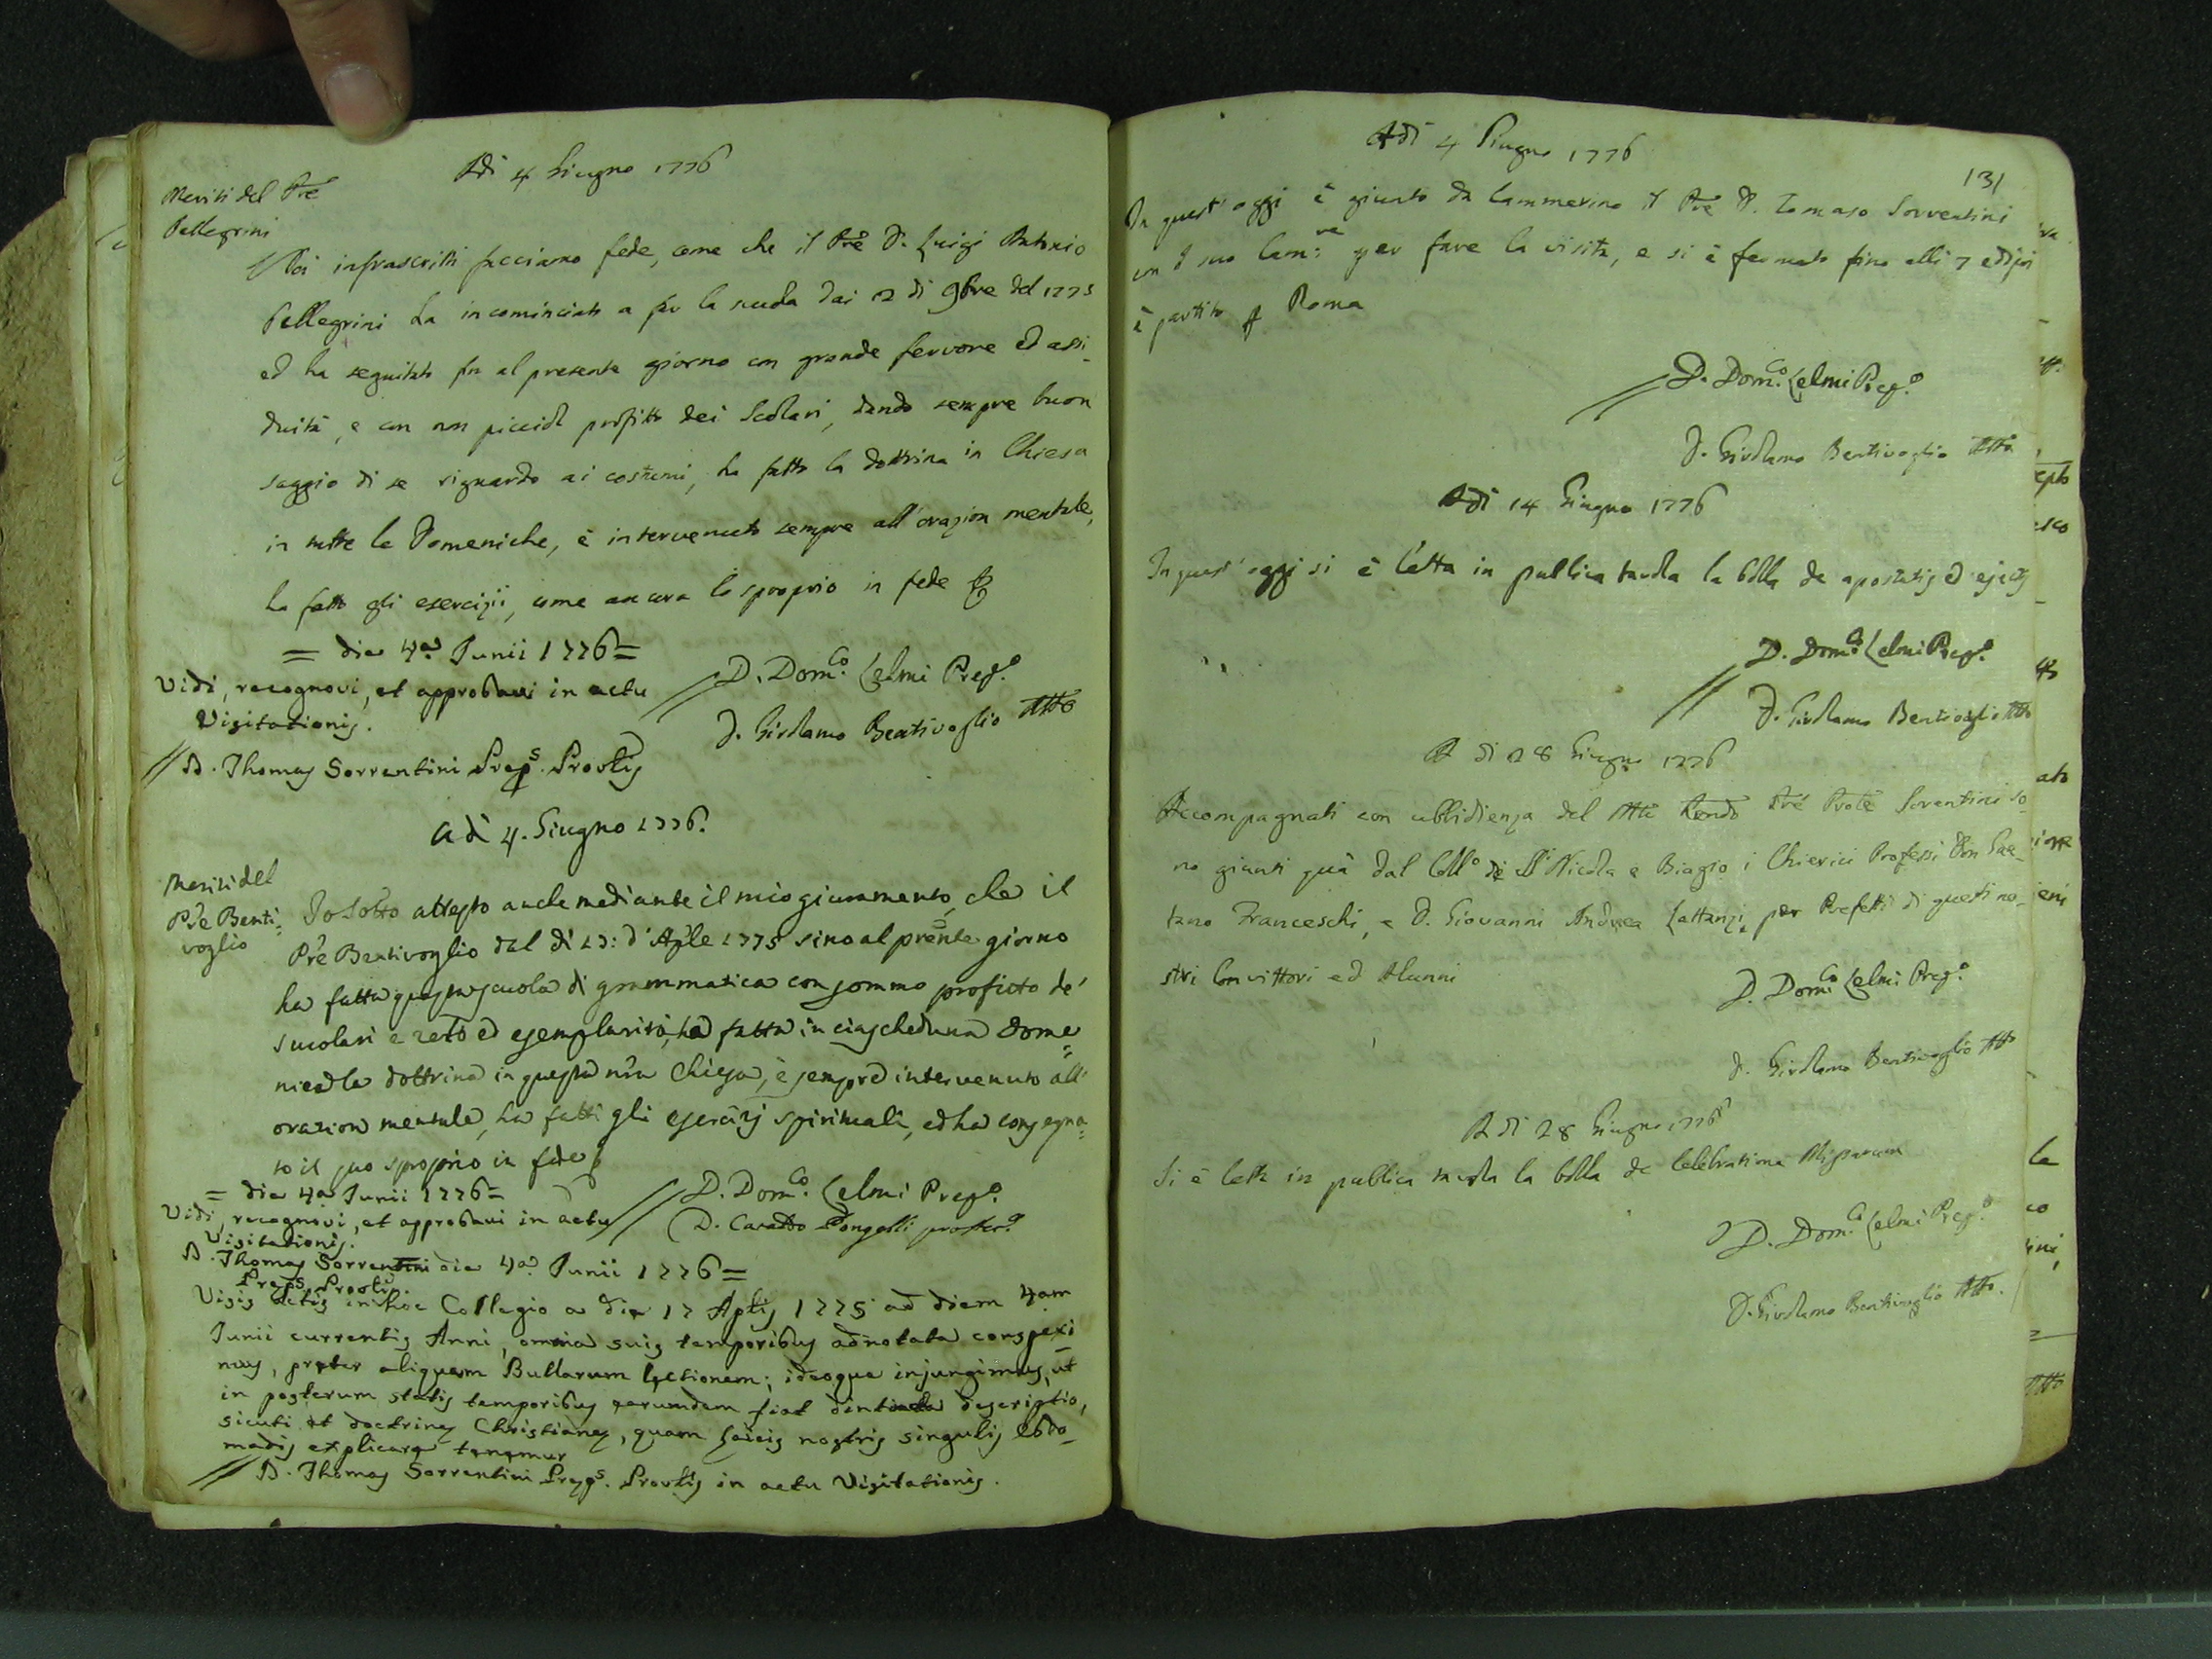 Adi 4 Giugno 1776
Meriti del Pre
Pellegrini
Noi infrascritti facciamo fede, come che il Pre D. Luigi Antonio
Pellegrini ha incominciato a far la scuola dai 12 di 9bre del 1775
ed ha seguitato fin al presente giorno con grande fervore ed assi-
duità, e con non picciol profitto dei Scolari, dando sempre buon
saggio di se riguardo ai costumi, ha fatto la dottrina in Chiesa
in tutte le Domeniche, è intervenuto sempre all'orazion mentale,
ha fatto gli esercizii, come ancora lo sproprio in fede
= die 4a. Junii 1776 =
Vidi, recognovi, et approbavi in actu
Visitationis.
// D. Thomas Sorrentini Preps. Provlis
// D. Domco. Celmi Prepo.
D. Girolamo Bentivoglio Atto
Adì 4. Giugno 1776.
Meriti del
Pre Benti=
voglio
Io Sotto attesto anche mediante il mio giuramento, che il
Pre Bentivoglio dal dì 23: d'Aple 1775 sino al prente giorno
ha fatta questa scuola di grammatica con sommo profitto de'
scuolari e zelo ed esemplarità, ha fatta in ciascheduna Dome=
nica la dottrina in questa nra Chiesa, è sempre intervenuto all'
orazion mentale, ha fatti gli esercizj spirituali, ed ha consegna=
to il suo sproprio in fede
= die 4a. Junii 1776 =
Vidi, recognovi, et approbavi in actu
Visitationis.
D. Thomas Sorrentini
Preps. Provlis.
// D. Domco. Celmi Prepo.
D.
die 4a. Junii 1776 =
Visis Actis in hoc Collegio a die 17 Aplis 1775 ad diem 4am
Junii currentis Anni, omnia suis temporibus adnotata conspexi
mus, preter aliquam Bullarum lectionem; ideoque injungimus, ut
in posterum statis temporibus earumdem fiat descriptio,
sicuti et doctrine Christiane, quam laicis nostris singulis ebdo-
madis explicare tenemur
// D. Thomas Sorrentini Preps. Provlis in actu Visitationis.
131
Adi 4 Giugno 1776
In quest'oggi è giunto da Cammerino il Pre D. Tomaso Sorrentini
con il suo Camre: per fare la visita, e si è fermato fino alli 7 e di poi
è partito p Roma
// D. Domco. Celmi Prepo.
D. Girolamo Bentivoglio Atto
Adi 14 Giugno 1776
In quest'oggi si è letta in publica tavola la bolla de apostatis ed ejectis
// D. Domco. Celmi Prepo.
D. Girolamo Bentivoglio Atto
A di 28 Giugno 1776
Accompagnati con ubbidienza del Mto Rendo Pre Prole Sorentini so-
no giunti quà dal Collo di SS Nicola e Biagio i Chierici Professi Don Gae-
tano Franceschi, e D. Giovanni Andrea Lattanzi, per Prefetti di questi no-
stri Convittori ed Alunni
D. Domco. Celmi Prepo.
D. Girolamo Bentivoglio Atto
A di 28 Giugno 1776
Si è letta in publica tavola la bolla de Celebratione Missarum
D. Domco. Celmi Prepo.
D. Girolamo Bentivoglio Atto.